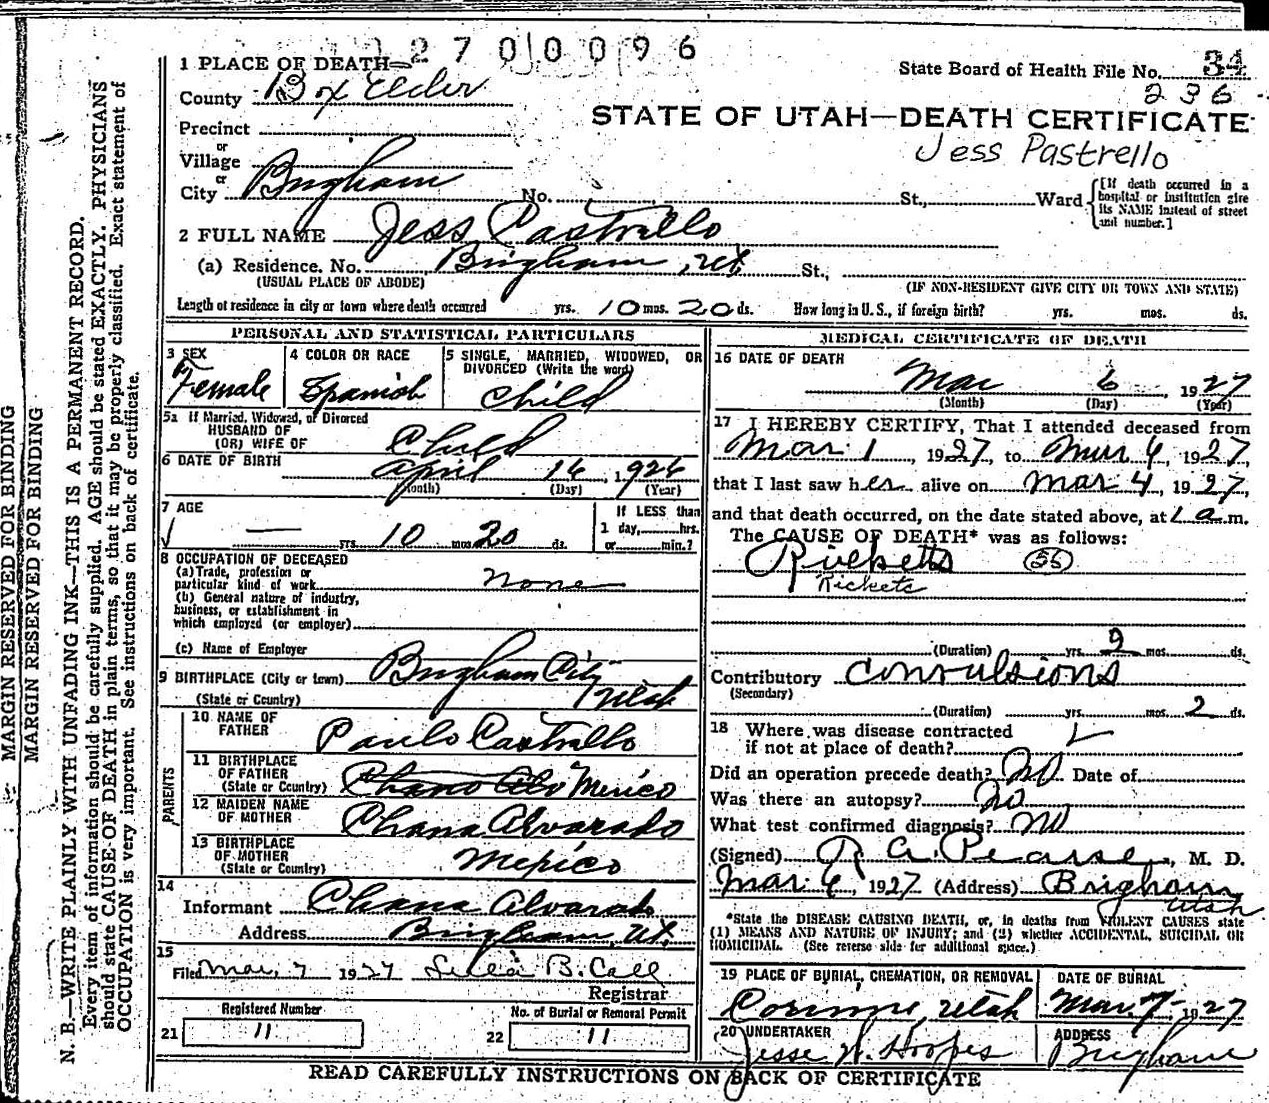 2700096
1 PLACE OF DEATH
State Board of Health File No. 34
236
County Box Elder
STATE OF UTAH—DEATH CERTIFICATE
Jess Pastrello
Precinct
or
Village
or
City Brigham No. St., Ward
[If death occurred in a hospital or institution give its NAME instead of street and number.]
2 FULL NAME Jess Pastrello
(a) Residence. No. Bingham, Ut. St.,
(USUAL PLACE OF ABODE)
(IF NON-RESIDENT GIVE CITY OR TOWN AND STATE)
Length of residence in city or town where death occurred yrs. 10 mos. 20 ds. How long in U. S., if foreign birth? yrs. mos. ds.
PERSONAL AND STATISTICAL PARTICULARS
3 SEX
Female
4 COLOR OR RACE
Spanish
5 SINGLE, MARRIED, WIDOWED, OR
DIVORCED (Write the word)
Child
5a If Married, Widowed, or Divorced
HUSBAND OF
(OR) WIFE OF
Child
6 DATE OF BIRTH April 16, 1926
(Month) (Day) (Year)
7 AGE
— yrs. 10 mos. 20 ds.
If LESS than
1 day, hrs.
or min.?
8 OCCUPATION OF DECEASED
(a) Trade, profession or
particular kind of work none
(b) General nature of industry,
business, or establishment in
which employed (or employer)
(c) Name of Employer
9 BIRTHPLACE (City or town) Brigham City
(State or Country) Utah
PARENTS
10 NAME OF
FATHER Paulo Castrello
11 BIRTHPLACE
OF FATHER
(State or Country) Mexico
12 MAIDEN NAME
OF MOTHER Chana Alvarado
13 BIRTHPLACE
OF MOTHER
(State or Country) Mexico
14
Informant Chana Alvarado
Address Brigham, Ut.
15
Filed Mar. 7 1927 Lulia B. Call
Registrar
Registered Number
21 11
No. of Burial or Removal Permit
22 11
MEDICAL CERTIFICATE OF DEATH
16 DATE OF DEATH
Mar 6 1927
(Month) (Day) (Year)
17 I HEREBY CERTIFY, That I attended deceased from
Mar. 1, 1927, to Mar 6, 1927,
that I last saw her alive on Mar 4, 1927,
and that death occurred, on the date stated above, at 1 a.m.
The CAUSE OF DEATH* was as follows:
Ricketts 56
Rickets
(Duration) yrs. 2 mos. ds.
Contributory Convulsions
(Secondary)
(Duration) yrs. mos. 2 ds.
18 Where was disease contracted
if not at place of death?
Did an operation precede death? No Date of
Was there an autopsy? No
What test confirmed diagnosis? No
(Signed) R. A. Pearse, M. D.
Mar. 6, 1927 (Address) Brigham,
Utah
*State the DISEASE CAUSING DEATH, or, in deaths from VIOLENT CAUSES state
(1) MEANS AND NATURE OF INJURY; and (2) whether ACCIDENTAL, SUICIDAL OR
HOMICIDAL. (See reverse side for additional space.)
19 PLACE OF BURIAL, CREMATION, OR REMOVAL
Corinne, Utah
DATE OF BURIAL
Mar. 7- 1927
20 UNDERTAKER
Jesse W. Hoopes
ADDRESS
Brigham
READ CAREFULLY INSTRUCTIONS ON BACK OF CERTIFICATE
MARGIN RESERVED FOR BINDING
MARGIN RESERVED FOR BINDING
N. B.—WRITE PLAINLY WITH UNFADING INK—THIS IS A PERMANENT RECORD.
Every item of information should be carefully supplied. AGE should be stated EXACTLY. PHYSICIANS
should state CAUSE OF DEATH in plain terms, so that it may be properly classified. Exact statement of
OCCUPATION is very important. See instructions on back of certificate.